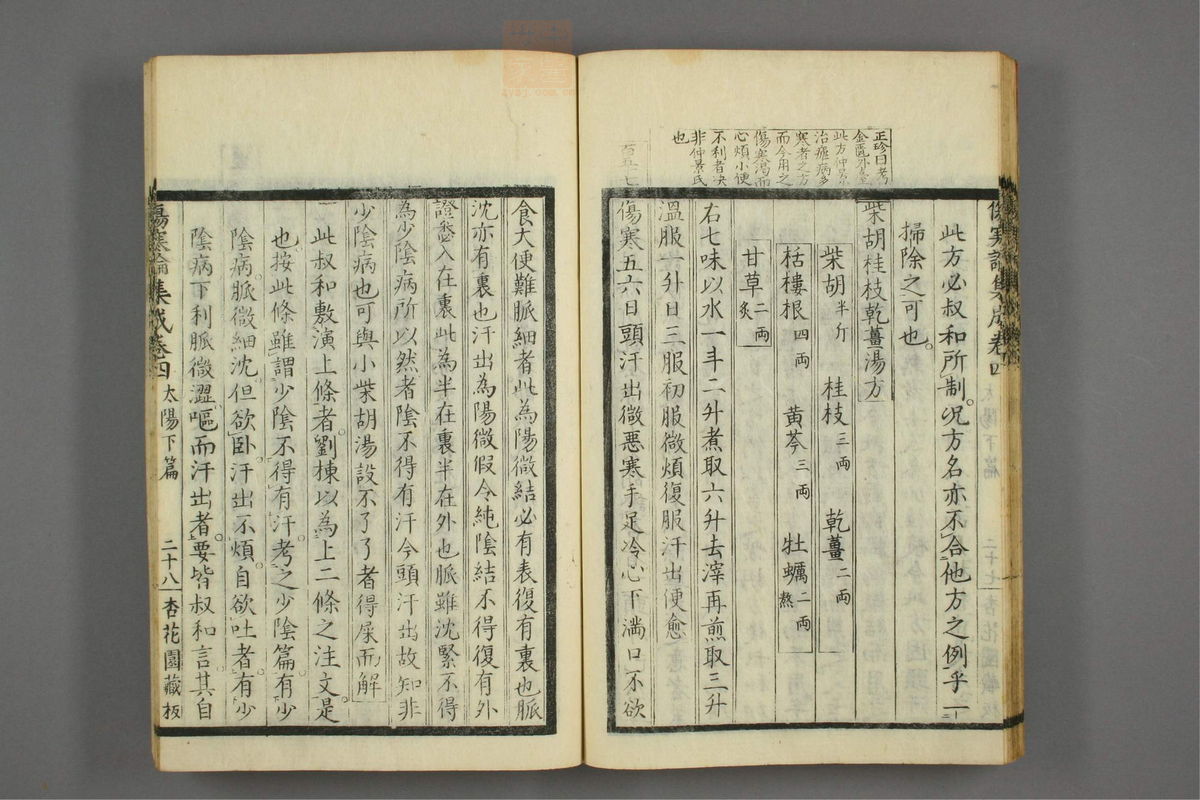 正珍曰考
金匱外臺
此方仲景
治瘧病多
寒者之方
而今用之
傷寒渴而
心煩小便
不利者决
非仲景氏
也
此方必叔和所制况方名亦不合他方之例乎一
掃除之可也
柴胡桂枝乾薑湯方
柴胡半斤 桂枝三両 乾薑二両
栝樓根四両 黄芩三両 牡蠣二両熬
甘草二両炙
右七味以水一斗二升煮取六升去滓再煎取三升
温服一升日三服初服微煩復服汗出便愈
百五十七
傷寒五六日頭汗出微悪寒手足冷心下満口不欲
食大便難脈細者此為陽微結必有表復有裏也脈
沈亦有裏也汗出為陽微假令純陰結不得復有外
證悉入在裏此為半在裏半在外也脈雖沈緊不得
為少陰病所以然者陰不得有汗今頭汗出故知非
少陰病也可與小柴胡湯設不了了者得屎而解
此叔和敷演上條者劉棟以為上二條之注文是
也按此條雖謂少陰不得有汗考之少陰篇有少
陰病脈微細沈但欲臥汗出不煩自欲吐者有少
陰病下利脈微澀嘔而汗出者要皆叔和言其自
傷寒論集成卷四 太陽下篇 二十八 杏花園藏板